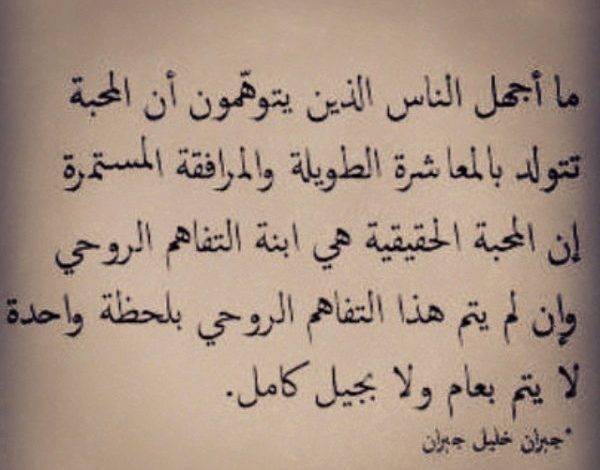 ما أجهل الناس الذين يتوهّمون أن المحبة
تتولد بالمعاشرة الطويلة والمرافقة المستمرة
إن المحبة الحقيقية هي ابنة التفاهم الروحي
وإن لم يتم هذا التفاهم الروحي بلحظة واحدة
لا يتم بعام ولا بجيل كامل.
*جبران خليل جبران